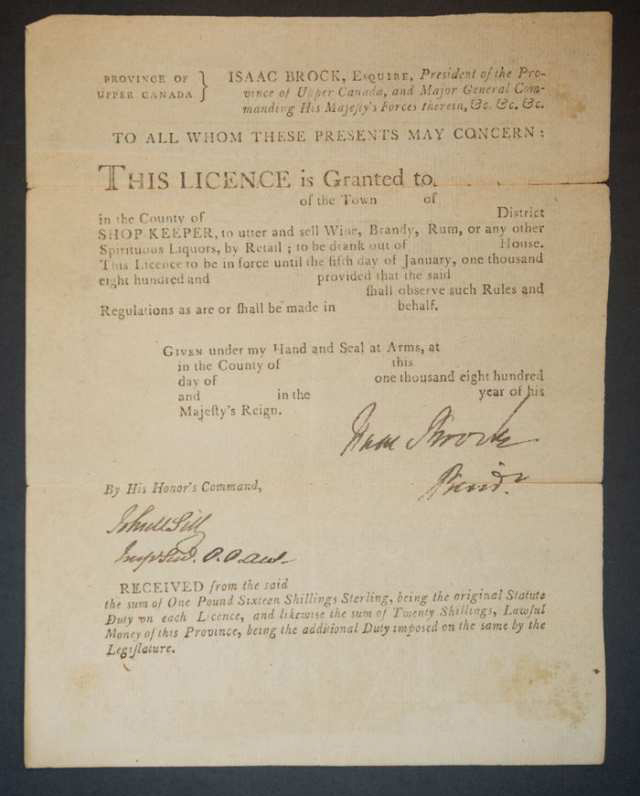 PROVINCE OF UPPER CANADA } ISAAC BROCK, Esquire, President of the Pro-
vince of Upper Canada, and Major General Com-
manding His Majeſty's Forces therein, &c. &c. &c.
TO ALL WHOM THESE PRESENTS MAY CONCERN:
THIS LICENCE is Granted to
of the Town of
in the County of District
SHOP KEEPER, to utter and sell Wine, Brandy, Rum, or any other
Spirituous Liquors, by Retail; to be drank out of House.
This Licence to be in force until the fifth day of January, one thousand
eight hundred and provided that the said
ſhall observe such Rules and
Regulations as are or ſhall be made in behalf.
GIVEN under my Hand and Seal at Arms, at
in the County of this
day of one thousand eight hundred
and in the year of his
Majeſty's Reign.
Isaac Brock
Presidt.
By His Honor's Command,
RECEIVED from the said
the sum of One Pound Sixteen Shillings Sterling, being the original Statute
Duty on each Licence, and likewise the sum of Twenty Shillings, Lawful
Money of this Province, being the additional Duty imposed on the same by the
Legiſlature.